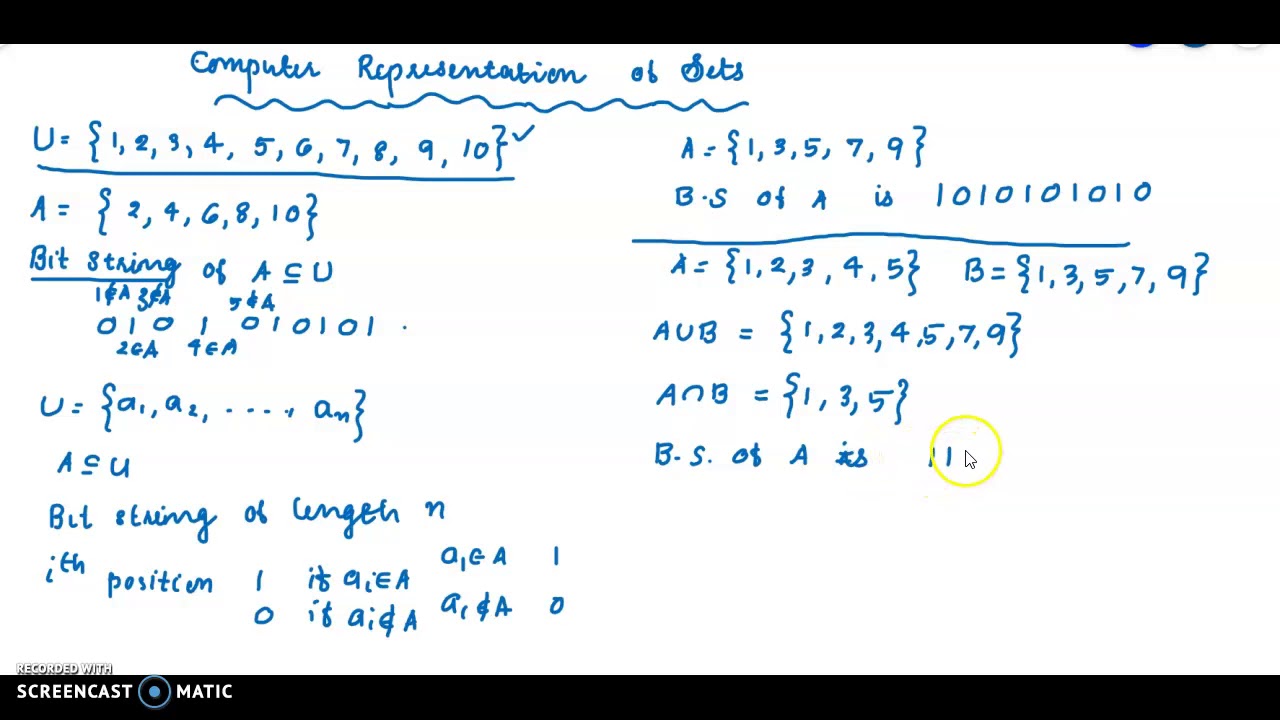 Computer Representation of Sets
U = {1, 2, 3, 4, 5, 6, 7, 8, 9, 10} ✓
A = {2, 4, 6, 8, 10}
Bit string of A ⊆ U
1∉A 3∉A 5∉A
0 1 0 1 0 1 0 1 0 1 .
2∈A 4∈A
U = {a₁, a₂, ....., aₙ}
A ⊆ U
Bit string of length n
iᵗʰ position 1 if aᵢ∈A a₁∈A 1
0 if aᵢ∉A a₁∉A 0
A = {1, 3, 5, 7, 9}
B.S of A is 1010101010
A = {1, 2, 3, 4, 5} B = {1, 3, 5, 7, 9}
A∪B = {1, 2, 3, 4, 5, 7, 9}
A∩B = {1, 3, 5}
B.S. of A is 11
RECORDED WITH
SCREENCAST MATIC